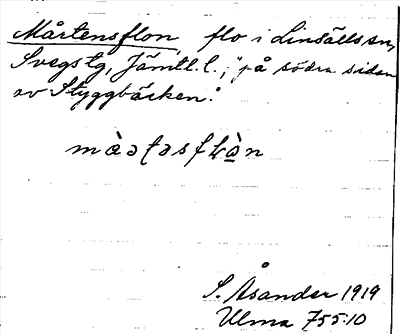 Mårtensflon, flo i Linsälls sn,
Svegs tg, Jämtl. l.; "på södra sidan
av Styggbäcken".
S. Åsander 1919
Ulma 755:10